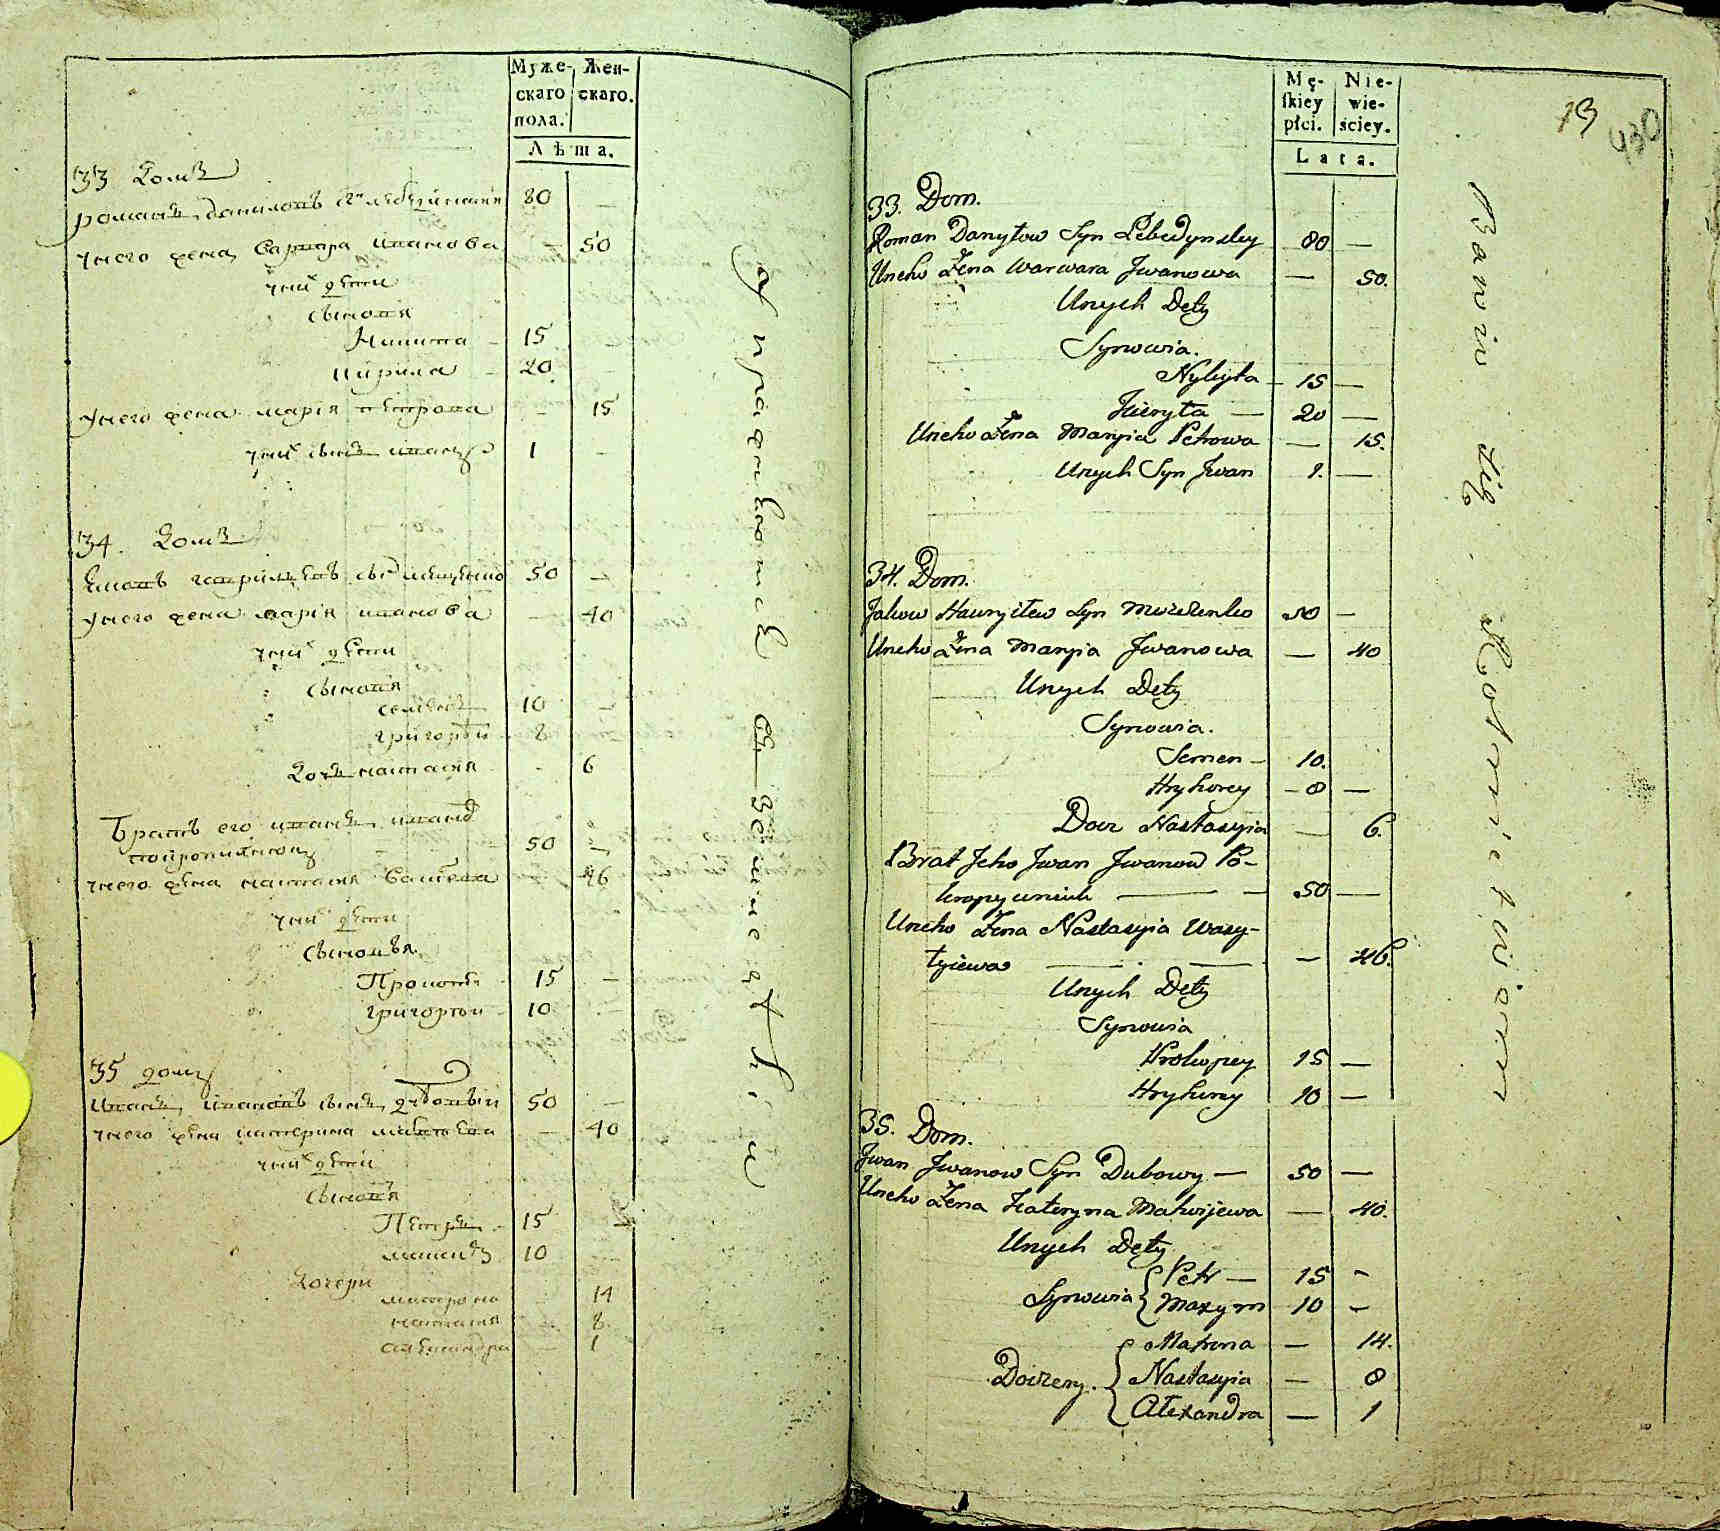 Муже-
скаго
пола.
Жен-
скаго.
Лѣта.
33 домъ
романъ даниловъ сынъ лебединский 80 —
у него жена варвара иванова — 50
у них дети
сыновя
Никита 15
кирила 20
у него жена мария петрова — 15
у них сынъ иванъ 1 —
34. домъ
Яковъ гавриловъ сынъ 50 —
у него жена мария иванова — 40
у них дети
сыновя
семенъ 10 —
григорей 8
дочь настасия - 6
Братъ его иванъ ивановъ
50
у него жена настасия василева 46
у них дети
сыновья
Прокопей 15 —
григорей 10 —
35 домъ
иванъ ивановъ сынъ дубовый 50 —
у него жена катерина матвеева — 40
у них дети
сыновя
Петръ 15
максимъ 10
дочери
матрона 14
настасия 8
александра — 1
упражняются въ земледелии
Mę-
skiey
płci.
Nie-
wie-
ściey.
Lata.
13
430
33. Dom.
Roman Danyłow Syn Lebedynsky 80 —
Uneho Żena Warwara Jwanowa — 50.
Unych Dety
Synowia.
Nykyta — 15 —
Kieryła — 20 —
Uneho Żena Maryia Petrowa — 15.
Unych Syn Jwan 1. —
34. Dom.
Jakow Hawryłow Syn 50 —
Uneho Żena Maryia Jwanowa — 40
Unych Dety
Synowia.
Semen — 10.
Hryhorey — 8 —
Docz Nastasyia — 6.
Brat Jeho Jwan Jwanow Po-
kropywnick — — 50 —
Uneho Żena Nastasyia Wasy-
łyiewa — — — 46.
Unych Dety
Synowia
Prokopey 15 —
Hryhorey 10 —
35. Dom.
Jwan Jwanow Syn Dubowy — 50 —
Uneho Żena Kateryna Matwijewa — 40.
Unych Dety
Synowia { Petr — 15 -
Maxym 10 -
Doczery. { Matrona — 14.
Nastasyia — 8
Ałexandra — 1
Bawią się Rolnictwem